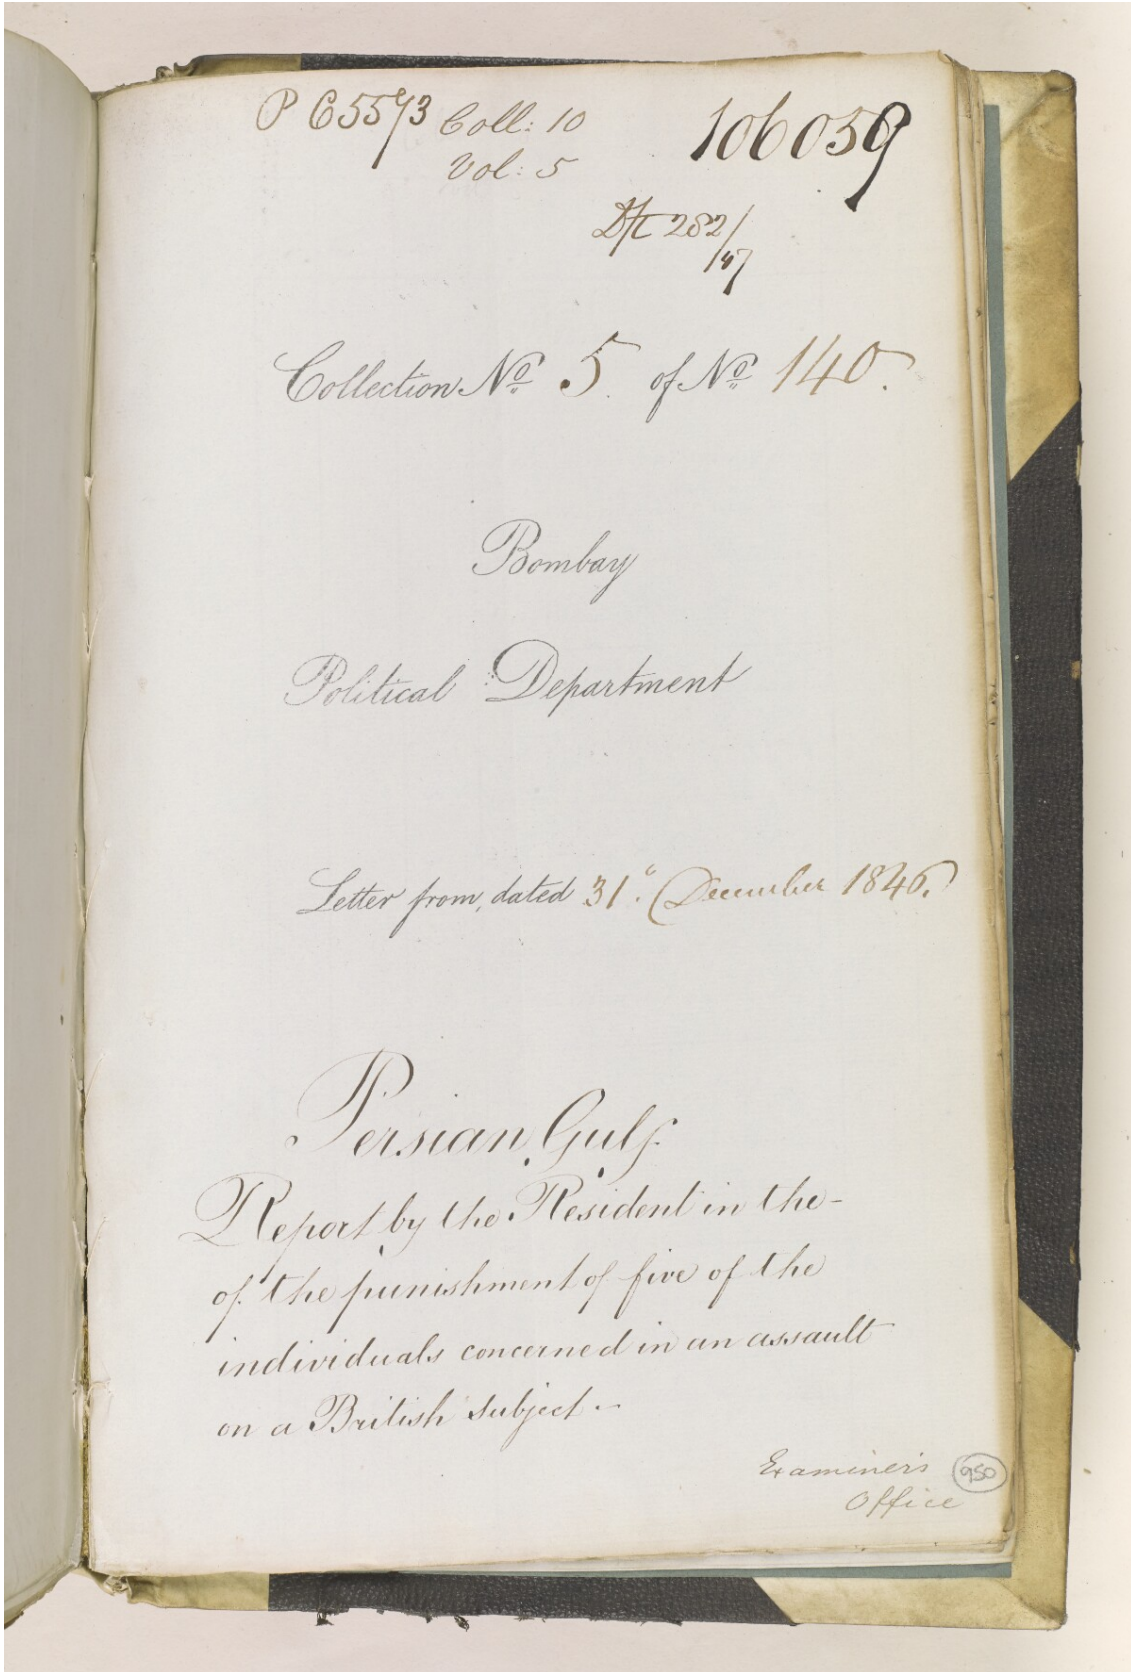 P C 5573 Coll: 10
Vol: 5
106059
Dft 282/47
Collection No 5. of No 140.
Bombay
Political Department
Letter from, dated 31. December 1846.
Persian Gulf
Report by the Resident in the -
of the punishment of five of the
individuals concerned in an assault
on a British subject. -
Examiner's
Office
950